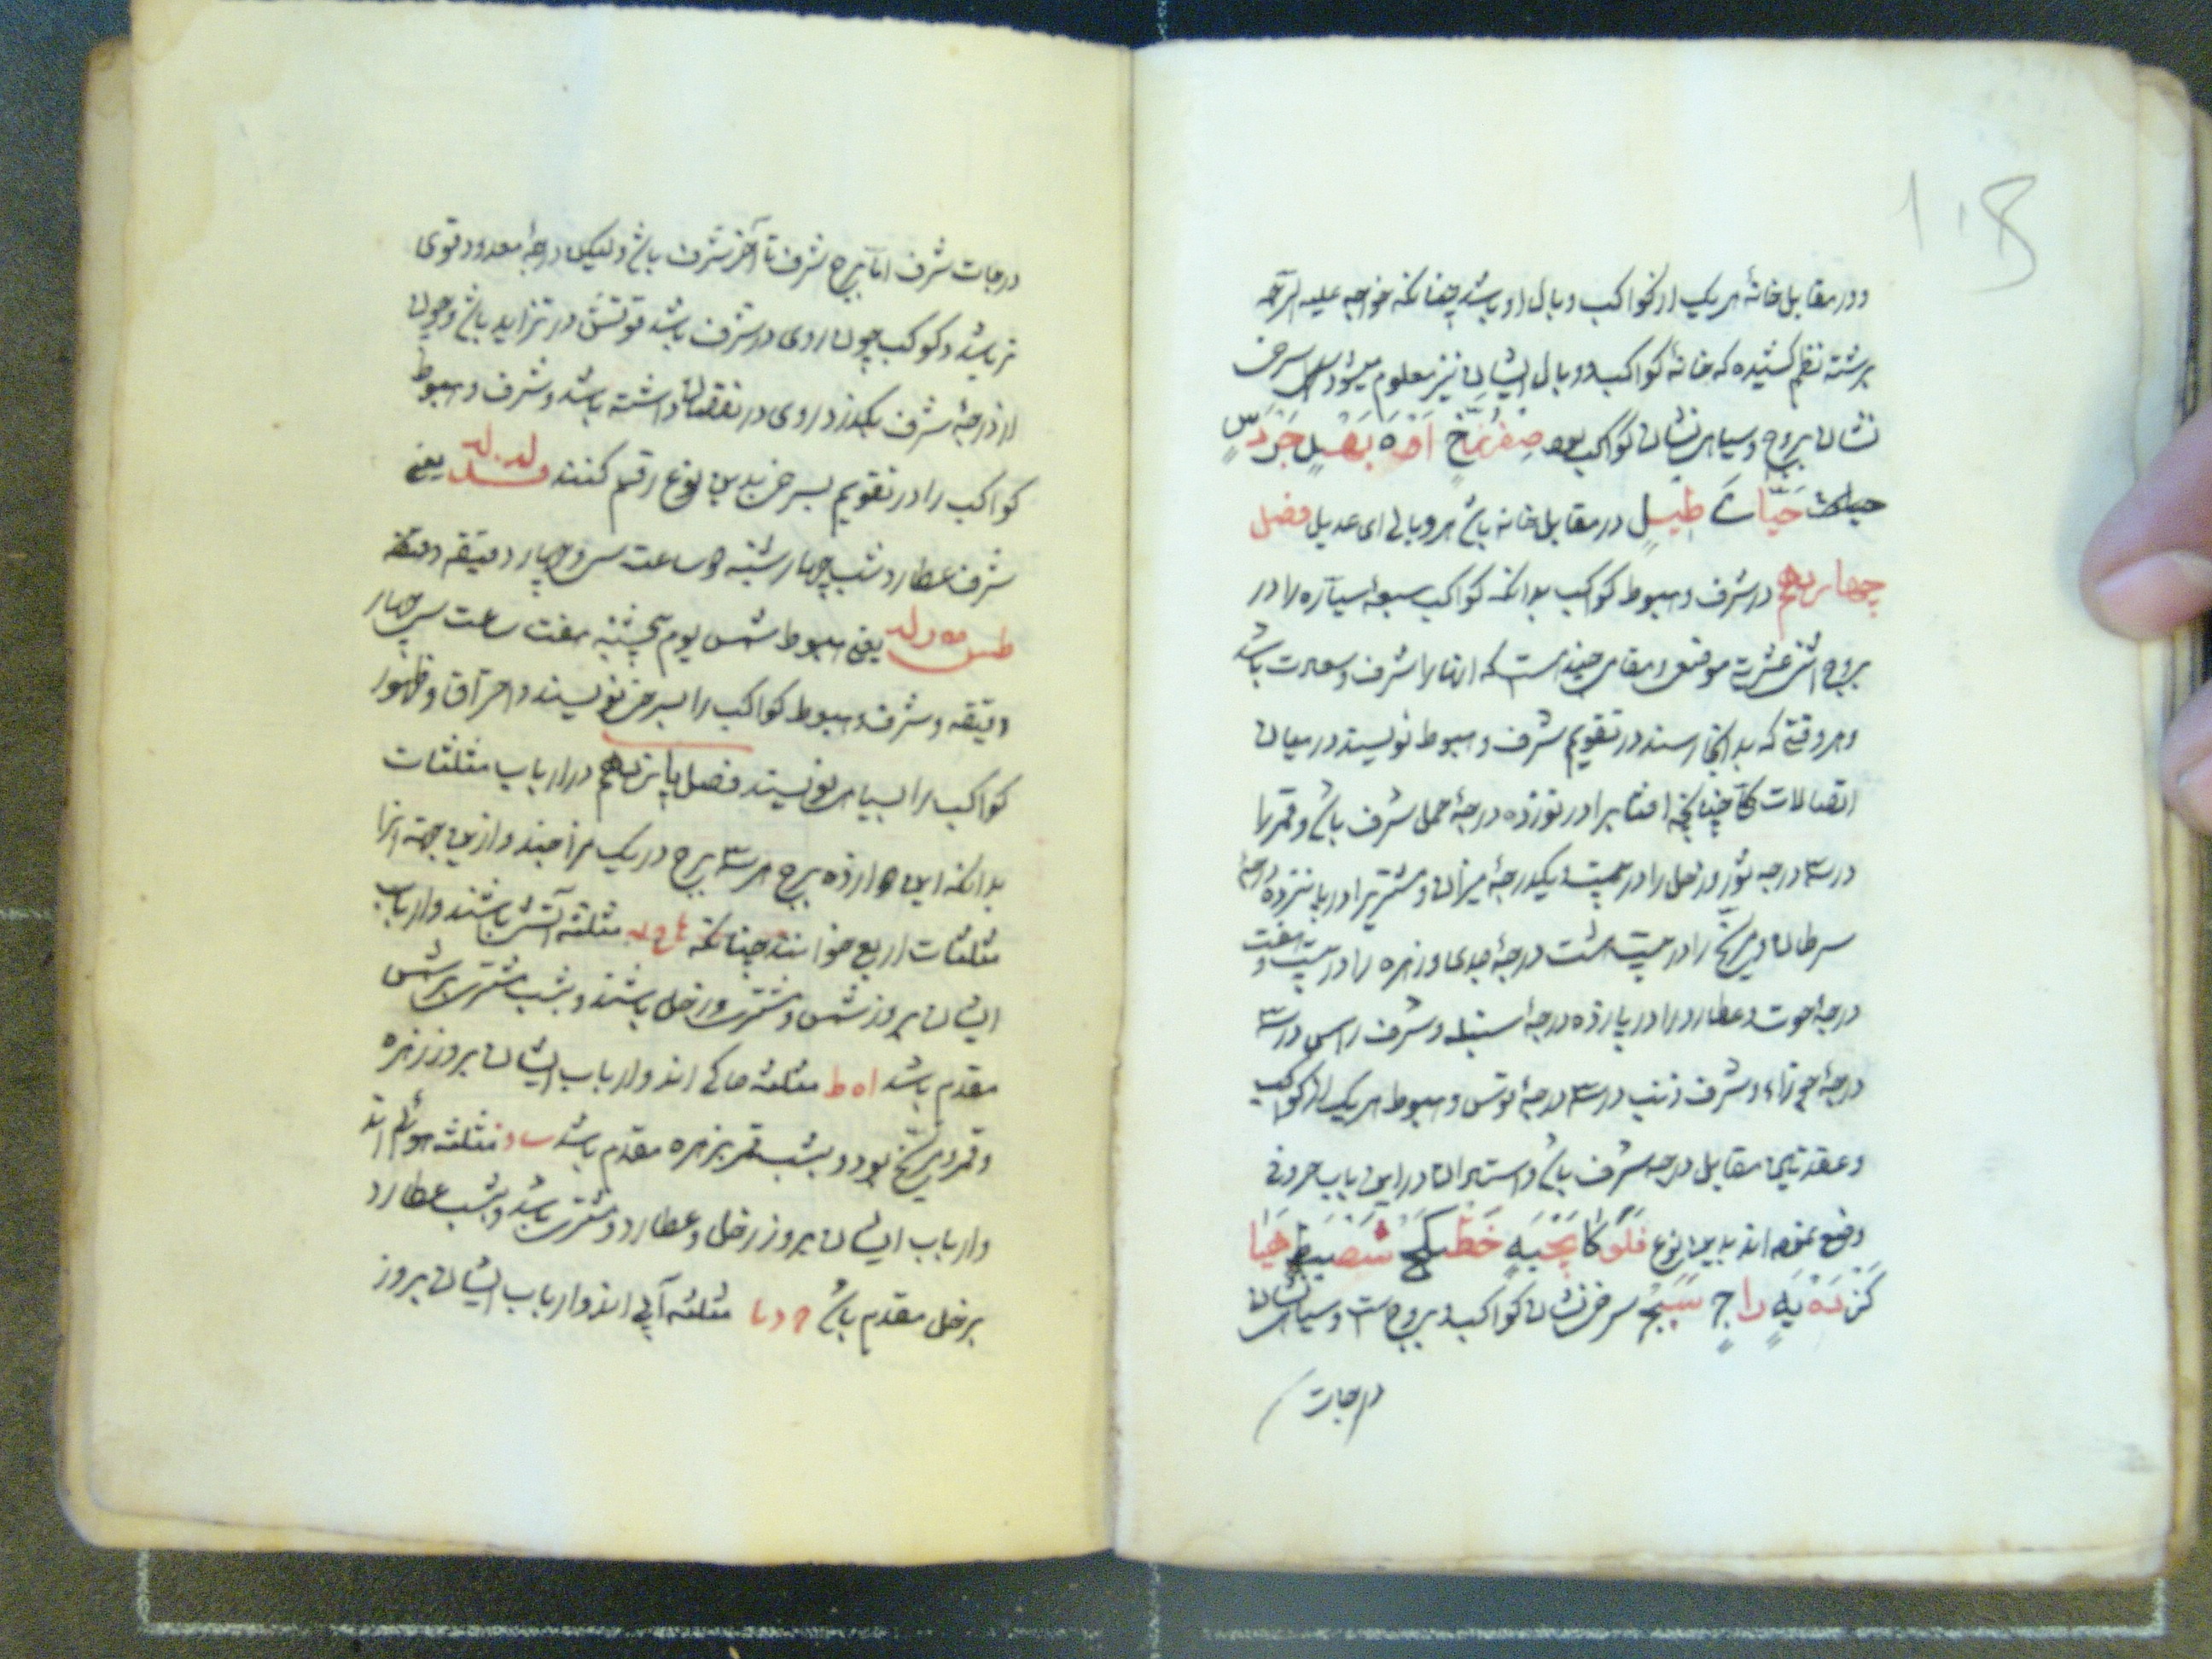 ۱۰۵
و در مقابل خانهٔ هر یک از کواکب وبال او باشد چنانکه خواجه علیه الرحمه
برشته نظم کشیده که خانهٔ کواکب و وبال ایشان نیز معلوم میشود سرخی
نشان بروج و سیاهی نشان کواکب بود
در مقابل خانه باشد هر وبالی ای عدیل فصل
چهاردهم در شرف و هبوط کواکب بدانکه کواکب سبعهٔ سیاره را در
بروج اثنی عشر موضعی و مقامی چند است که آنها را شرف و سعادت باشد
و هر وقتی که بدانجا رسند در تقویم شرف و هبوط نویسند در میان
اتصالات چنانچه افتاب را در نوزده درجهٔ حمل شرف باشد و قمر را
در سه درجه ثور و زحل را در بیست و یکدرجهٔ میزان و مشتری را در پانزده درجهٔ
سرطان و مریخ را در بیست و هشت درجهٔ جدی و زهره را در بیست و هفت
درجهٔ حوت و عطارد را در پازده درجهٔ سنبله و شرف راس در سه
درجهٔ جوزاء و شرف ذنب در سه درجهٔ قوس و هبوط هر یک از کواکب
و عقدتین مقابل درجه شرف باشد و استادان در این باب حروفی
وضع نموده اند بدین نوع
سرخی نشان کواکب و بروج است و سیاهی نشان
درجات
درجات شرف اما برج شرف تا آخر شرف باشد و لیکن درجهٔ معدود قوی
تر باشد و کوکب چون روی در شرف باشد قوتش در تزاید باشد و چون
از درجهٔ شرف بگذرد روی در نقصان داشته باشد و شرف و هبوط
کواکب را در تقویم بسرخی بدین نوع رقم کنند یعنی
شرف عطارد شب چهارشنبه ساعت سی و چهار دقیقه
یعنی هبوط شمس یوم پنجشنبه هفت ساعت سی چهار
دقیقه و شرف و هبوط کواکب را بسرخی نویسند و احتراق و ظهور
کواکب را بسیاهی نویسند فصل پانزدهم در ارباب مثلثات
بدانکه این دوازده برج هر سه برج در یک مزاجند و ازین جهة انرا
مثلثات اربع خوانند چنانکه مثلثه آتشی باشند و ارباب
ایشان بروز شمس و مشتری و زحل باشند و بشب مشتری بر شمس
مقدم باشد ا ه ط مثلثه خاکی اند و ارباب ایشان بروز زهره
و قمر و مریخ بود و بشب قمر بر زهره مقدم باشد مثلثه هوائی اند
و ارباب ایشان بروز زحل و عطارد و مشتری باشد و بشب عطارد
بر زحل مقدم باشد مثلثه آبی اند و ارباب ایشان بروز